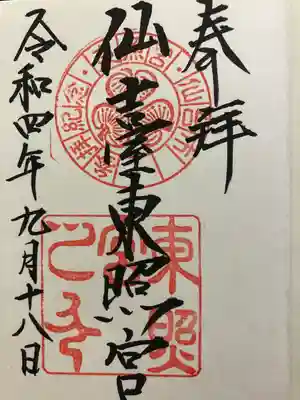 奉拝
仙臺東照宮
令和四年九月十八日